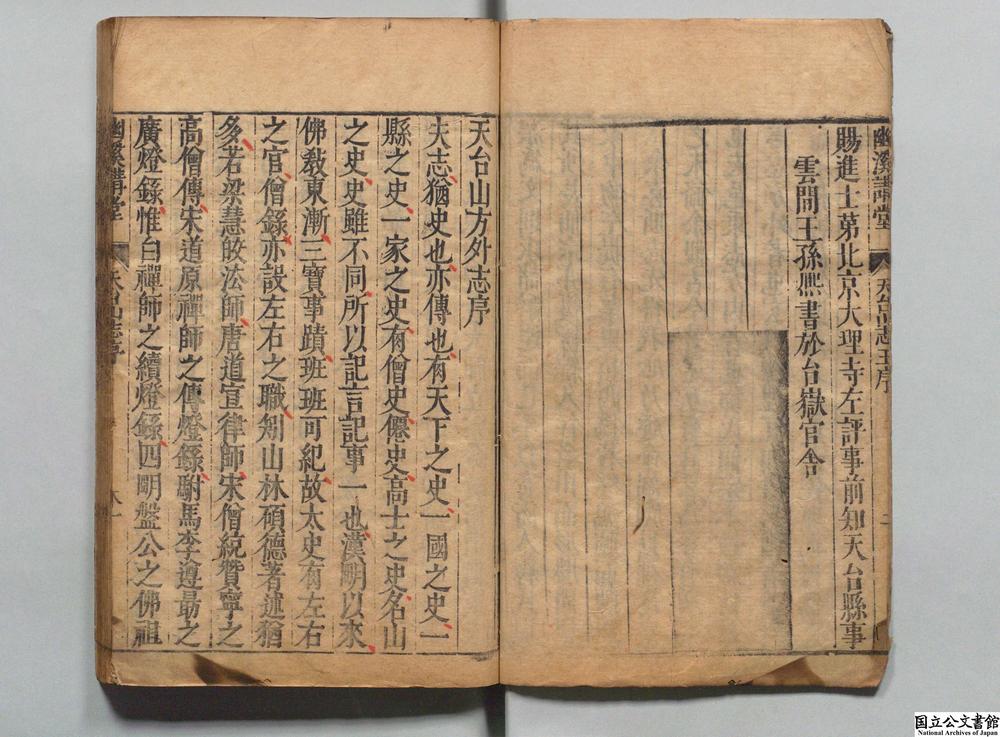 幽溪講堂 天台山志王序 二
賜進士第北京大理寺左評事前知天台縣事
雲間王孫熈書於台嶽官舎
天台山方外志序
夫志猶史也亦傳也有天下之史一國之史一
縣之史一家之史有僧史僊史高士之史名山
之史史雖不同所以記言記事一也漢明以來
佛敎東漸三寶事蹟班班可紀故太史有左右
之官僧錄亦設左右之職矧山林碩德著述猶
多若梁慧皎法師唐道宣律師宋僧統贊寧之
高僧傳宋道原禪師之傳燈錄駙馬李遵最之
廣燈錄惟白禪師之續燈錄四明盤公之佛祖
幽溪講堂 天台山志序
国立公文書館
National Archives of Japan